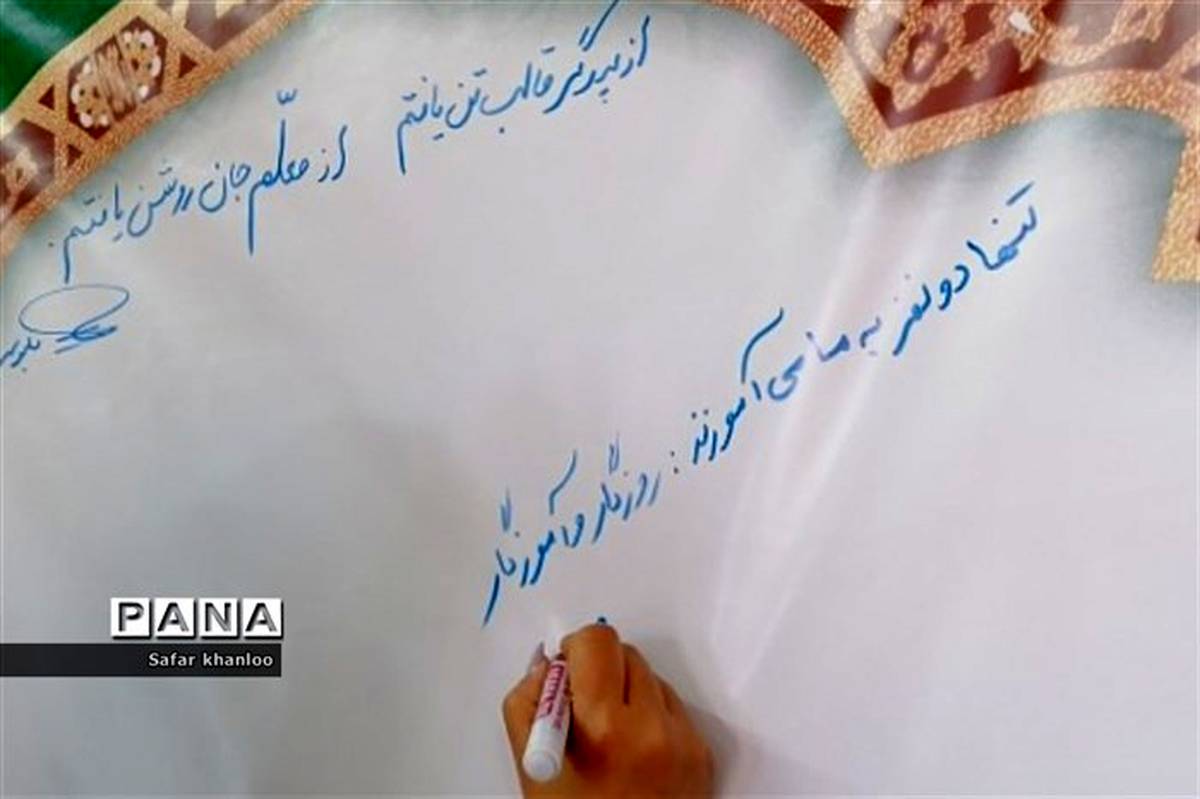 از پدر گر قالب تن یافتم
از معلّم جان روشن یافتم.
تنها دو نفر به ما می‌آموزند: روزگار و آموزگار
PANA
Safar khanloo